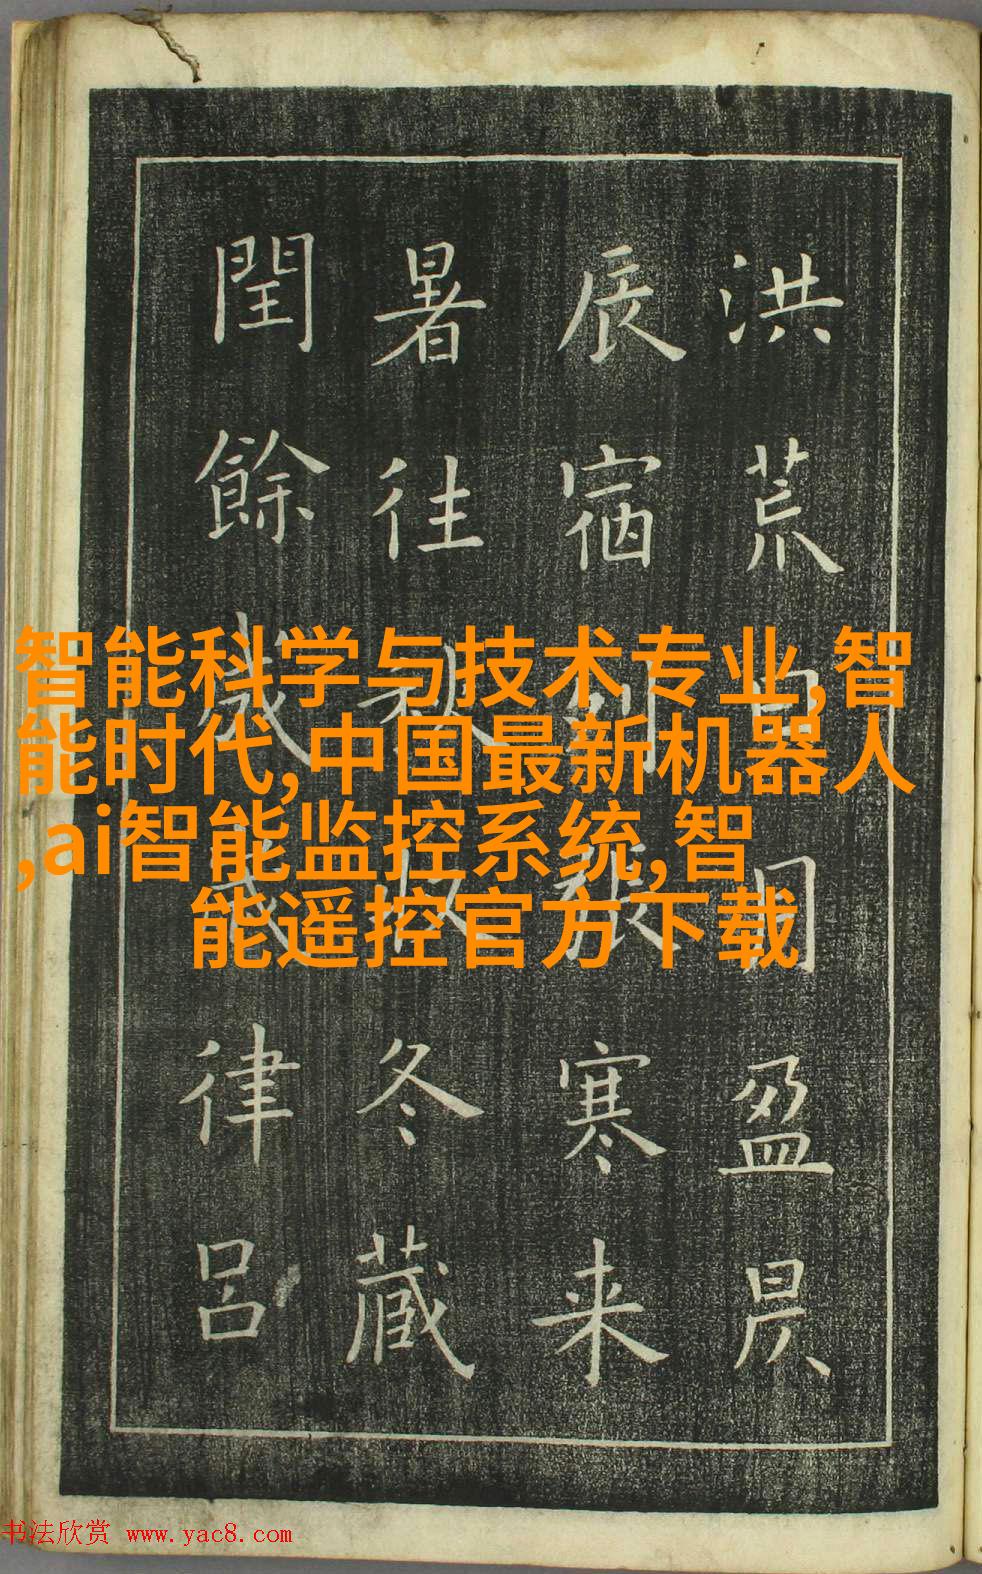 洪荒日月盈昃
辰宿列張寒来
暑往秋收冬藏
閏餘歲成律呂
智能科学与技术专业,智
能时代,中国最新机器人
,ai智能监控系统,智
能遥控官方下载
书法欣赏 www.yac8.com